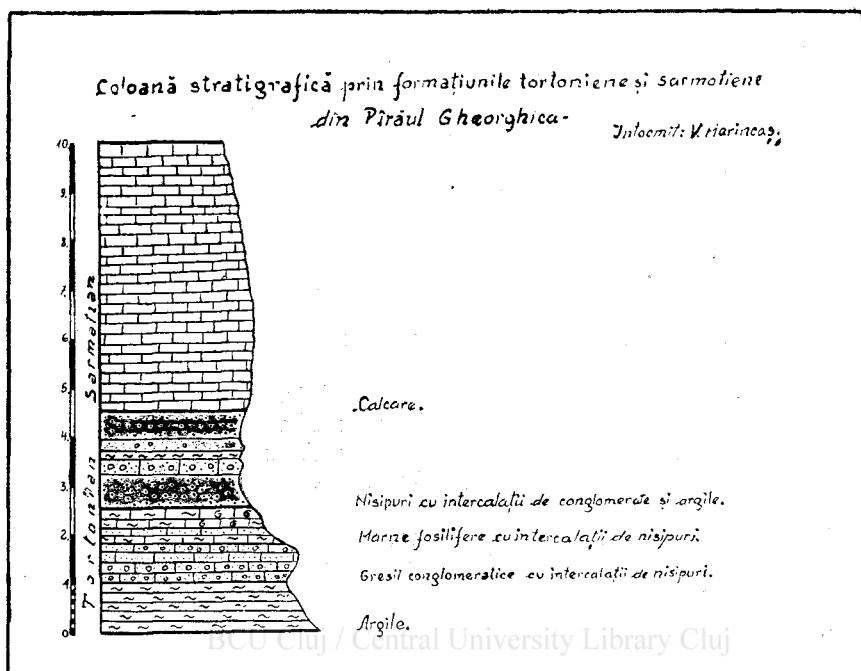 Coloană stratigrafică prin formațiunile tortoniene și sarmatiene
din Pîrăul Gheorghica-
Întocmit: V. Marincaș.
10.
9.
8.
7.
6.
5.
4.
3.
2.
1.
0.
Sarmațian
Tortonian
Calcare.
Nisipuri cu intercalații de conglomerate și argile.
Marne fosilifere cu intercalații de nisipuri.
Gresii conglomeratice cu intercalații de nisipuri.
Argile.
BCU Cluj / Central University Library Cluj